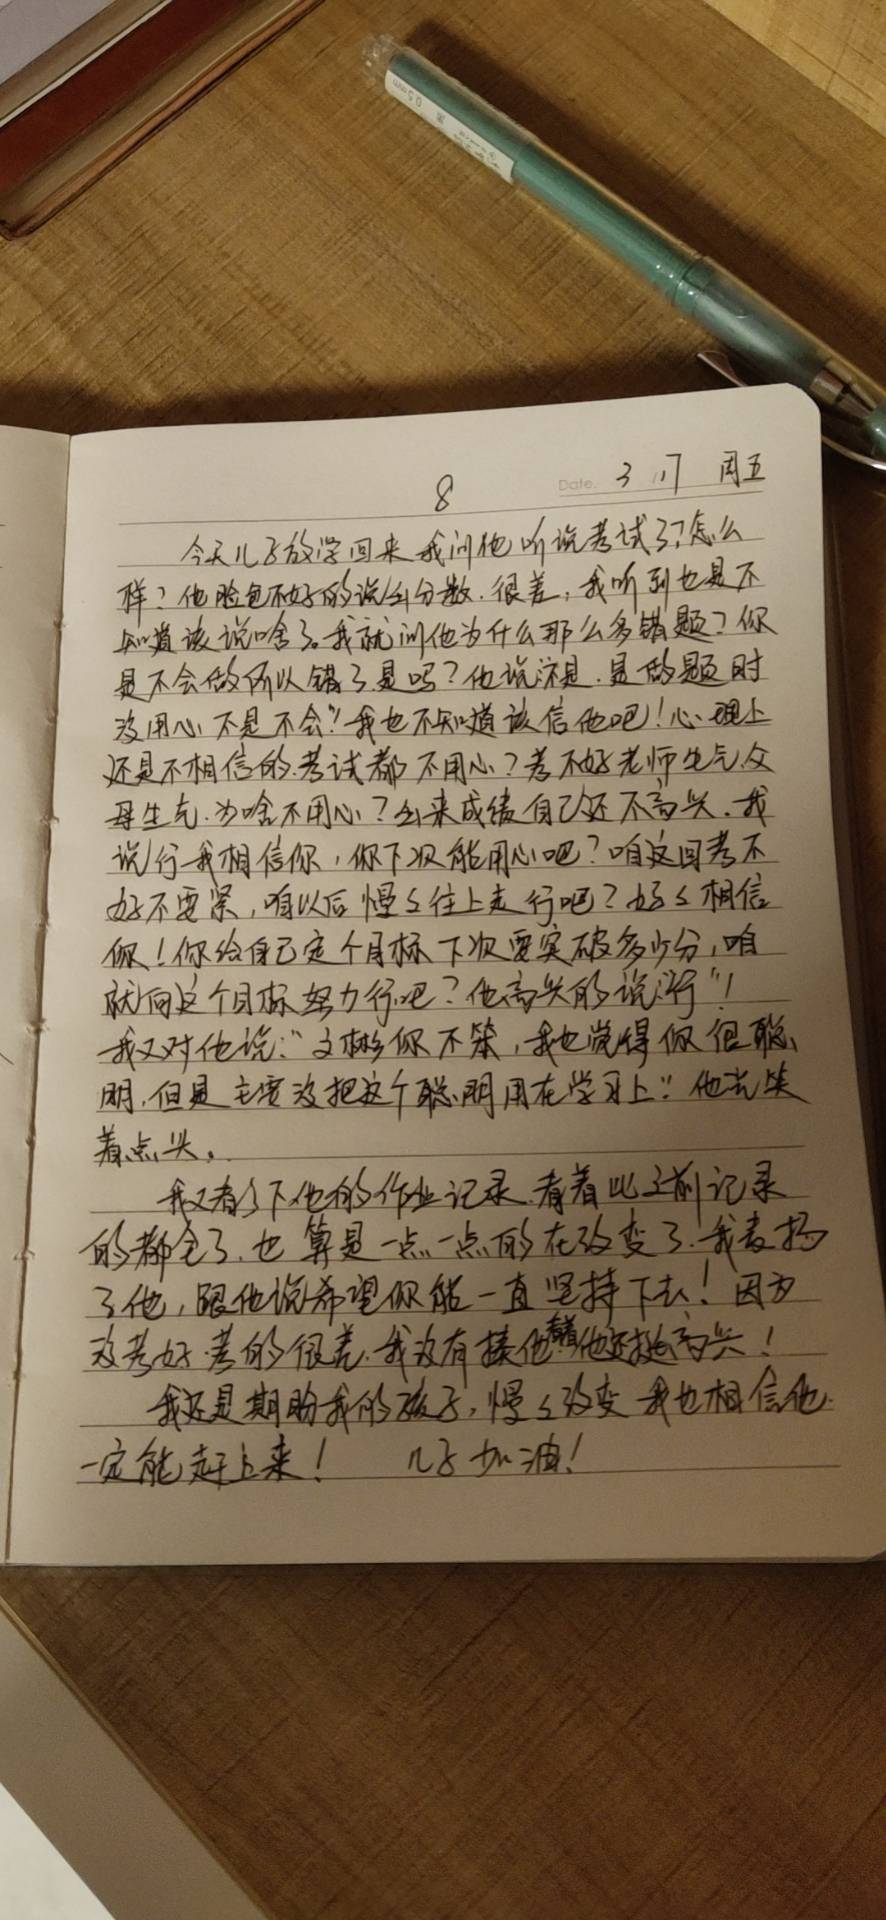 0.5mm
8
Date. 3 17 周五
今天儿子放学回来我问他听说考试了?怎么
样?他脸色不好的说出分数.很差,我听到也是不
知道该说啥了。我就问他为什么那么多错题?你
是不会做所以错了是吗?他说不是.是做题时
没用心不是不会"我也不知道该信他吧!心理上
还是不相信的.考试都不用心?考不好老师生气父
母生气.为啥不用心?出来成绩自己还不高兴.我
说行我相信你,你下次能用心吧?咱这回考不
好不要紧,咱以后慢々往上走行吧?好々相信
你!你给自己定个目标下次要突破多少分,咱
就向这个目标努力行吧?他高兴的说"行"!
我又对他说:"文彬你不笨,我也觉得你很聪
明,但是主要没把这个聪明用在学习上"他光笑
着点头。
我又看了下他的作业记录.看着比之前记录
的都全了,也算是一点一点的在改变了.我表扬
了他,跟他说希望你能一直坚持下去!因为
没考好.考的很差.我没有揍他他还挺高兴!
我还是期盼我的孩子,慢々改变我也相信他
一定能赶上来! 儿子加油!